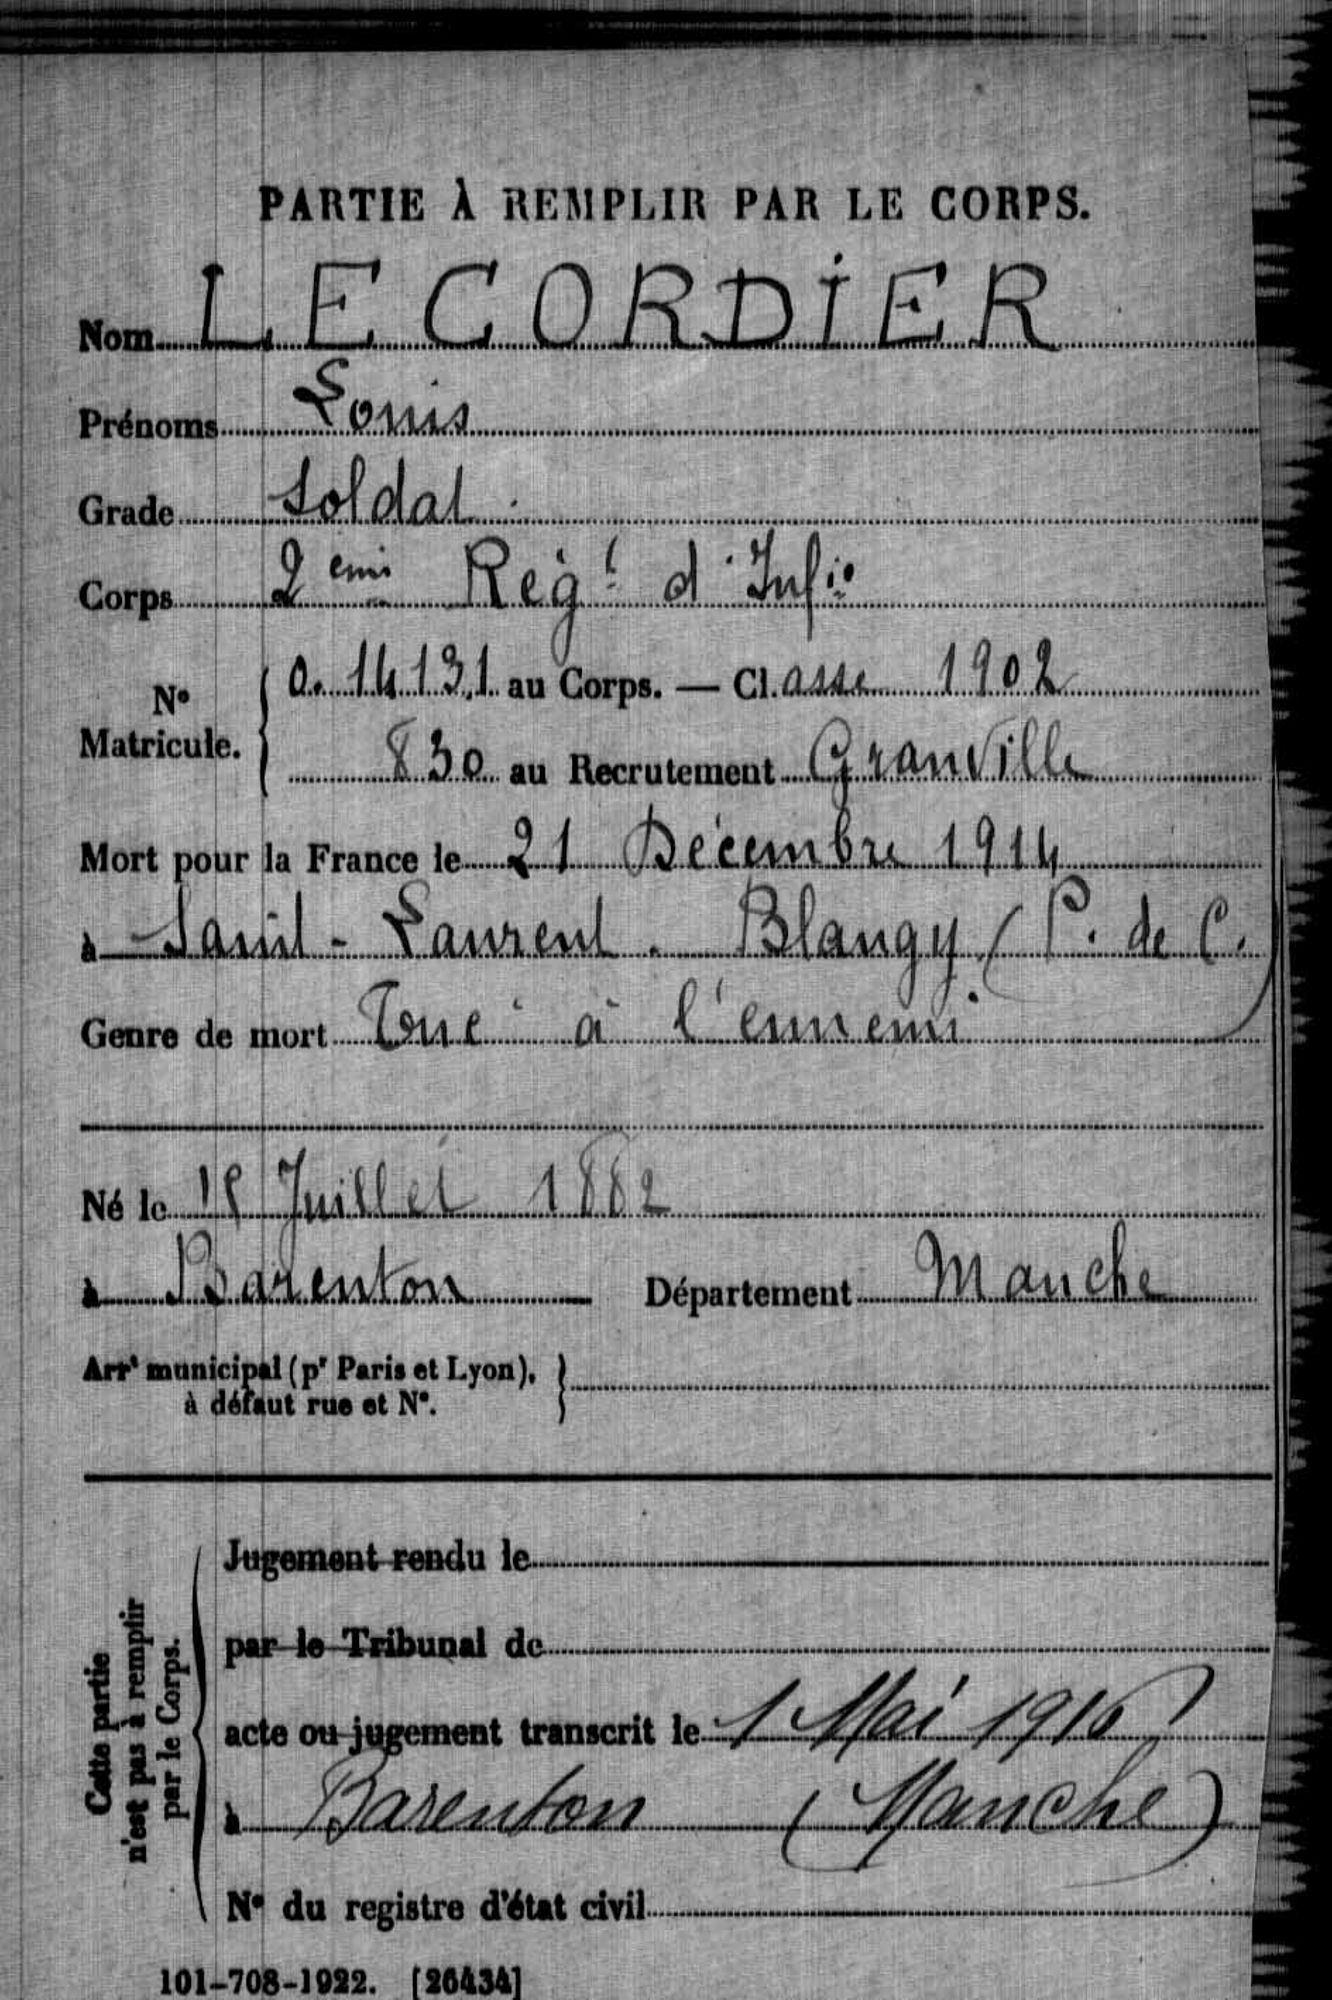 PARTIE À REMPLIR PAR LE CORPS.
Nom LECORDIER
Prénoms Louis
Grade Soldat
Corps 2 eme Régt d'Infie
No Matricule. { 0.14131 au Corps. — Cl.asse 1902
830 au Recrutement Granville
Mort pour la France le 21 Décembre 1914
à Saint-Laurent. Blangy (P. de C.)
Genre de mort Tué à l'ennemi
Né le Juillet 1882
à Barenton Département Manche
Arrt municipal (pr Paris et Lyon), }
à défaut rue et No.
Cette partie
n'est pas à remplir
par le Corps.
Jugement rendu le
par le Tribunal de
acte ou jugement transcrit le 1 Mai 1916
à Barenton (Manche)
No du registre d'état civil
101-708-1922. [26434]